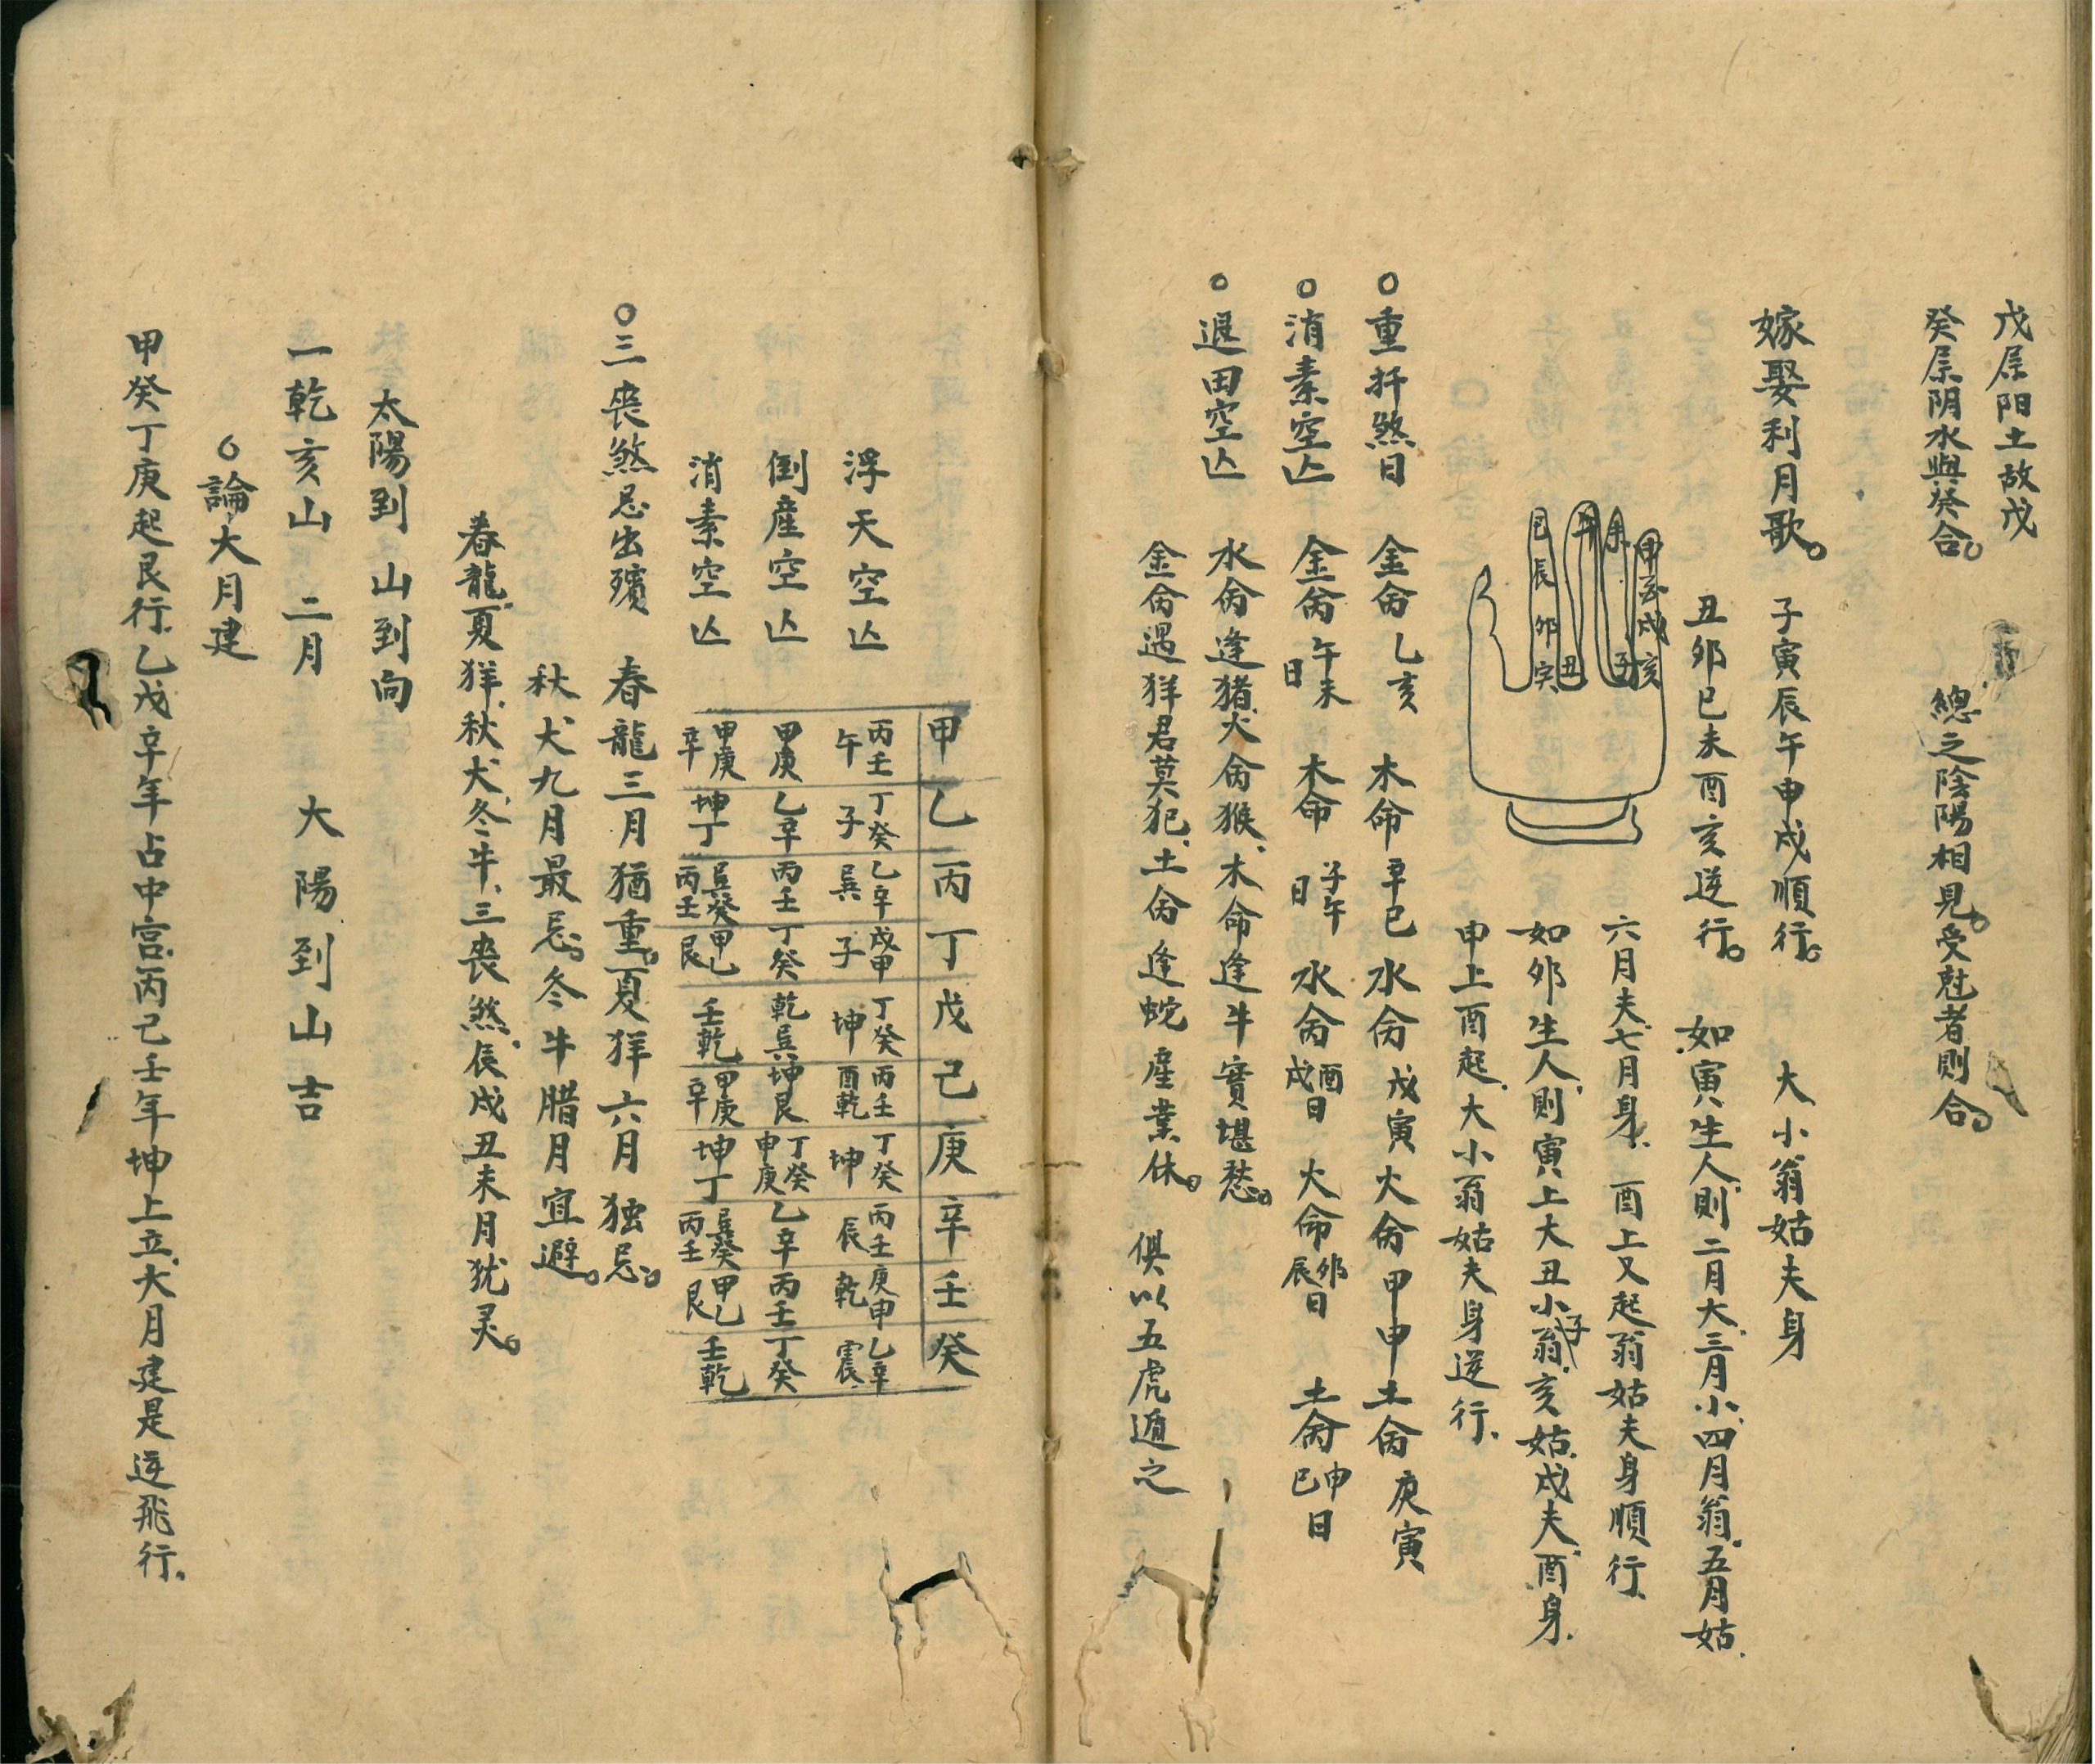 戊屬阳土故戊
癸屬阴水與癸合。
總之陰陽相見。受尅者則合。
嫁娶利月歌。 子寅辰午申戌順行。 大小翁姑夫身
丑卯巳未酉亥逆行。 如寅生人則二月大、三月小、四月翁、五月姑、
六月夫、七月身、酉上又起翁姑夫身順行、
如卯生人則寅上大丑小子翁、亥姑、戌夫、酉身、
申上酉起、大小翁姑夫身逆行、
巳辰卯寅
午丑
未子
申酉戌亥
○重扦煞日 金命乙亥 木命辛巳 水命戊寅 火命甲申 土命庚寅
○消索空亡 金命午未日 木命子午日 水命酉戌日 火命卯辰日 土命申巳日
○退田空亡 水命逢猪、火命猴、木命逢牛實堪愁。
金命遇羊君莫犯、土命逢蛇產業休。 俱以五虎遁之
甲乙丙丁戊己庚辛壬癸
浮天空亡 丙壬午 丁癸子 乙辛巽 戊申子 丁癸坤 丙壬酉乾 丁癸坤 丙壬辰 庚申乾 乙辛震
倒產空亡 甲庚 乙辛 丙壬 丁癸 乾巽 坤艮 丁癸申庚 乙辛 丙壬 丁癸
消索空亡 甲庚辛 坤丁 巽癸丙壬 甲乙艮 壬乾 甲庚辛 坤丁 巽癸丙壬 甲乙艮 壬乾
○三喪煞忌出殯 春龍三月猶重。夏羊六月独忌。
秋犬九月最忌。冬牛腊月宜避。
春龍、夏羊、秋犬、冬牛、三喪煞、辰戌丑未月犹灵。
太陽到山到向
一乾亥山二月 大陽到山吉
○論大月建
甲癸丁庚起艮行、乙戊辛年占中宫、丙己壬年坤上立、大月建是逆飛行、